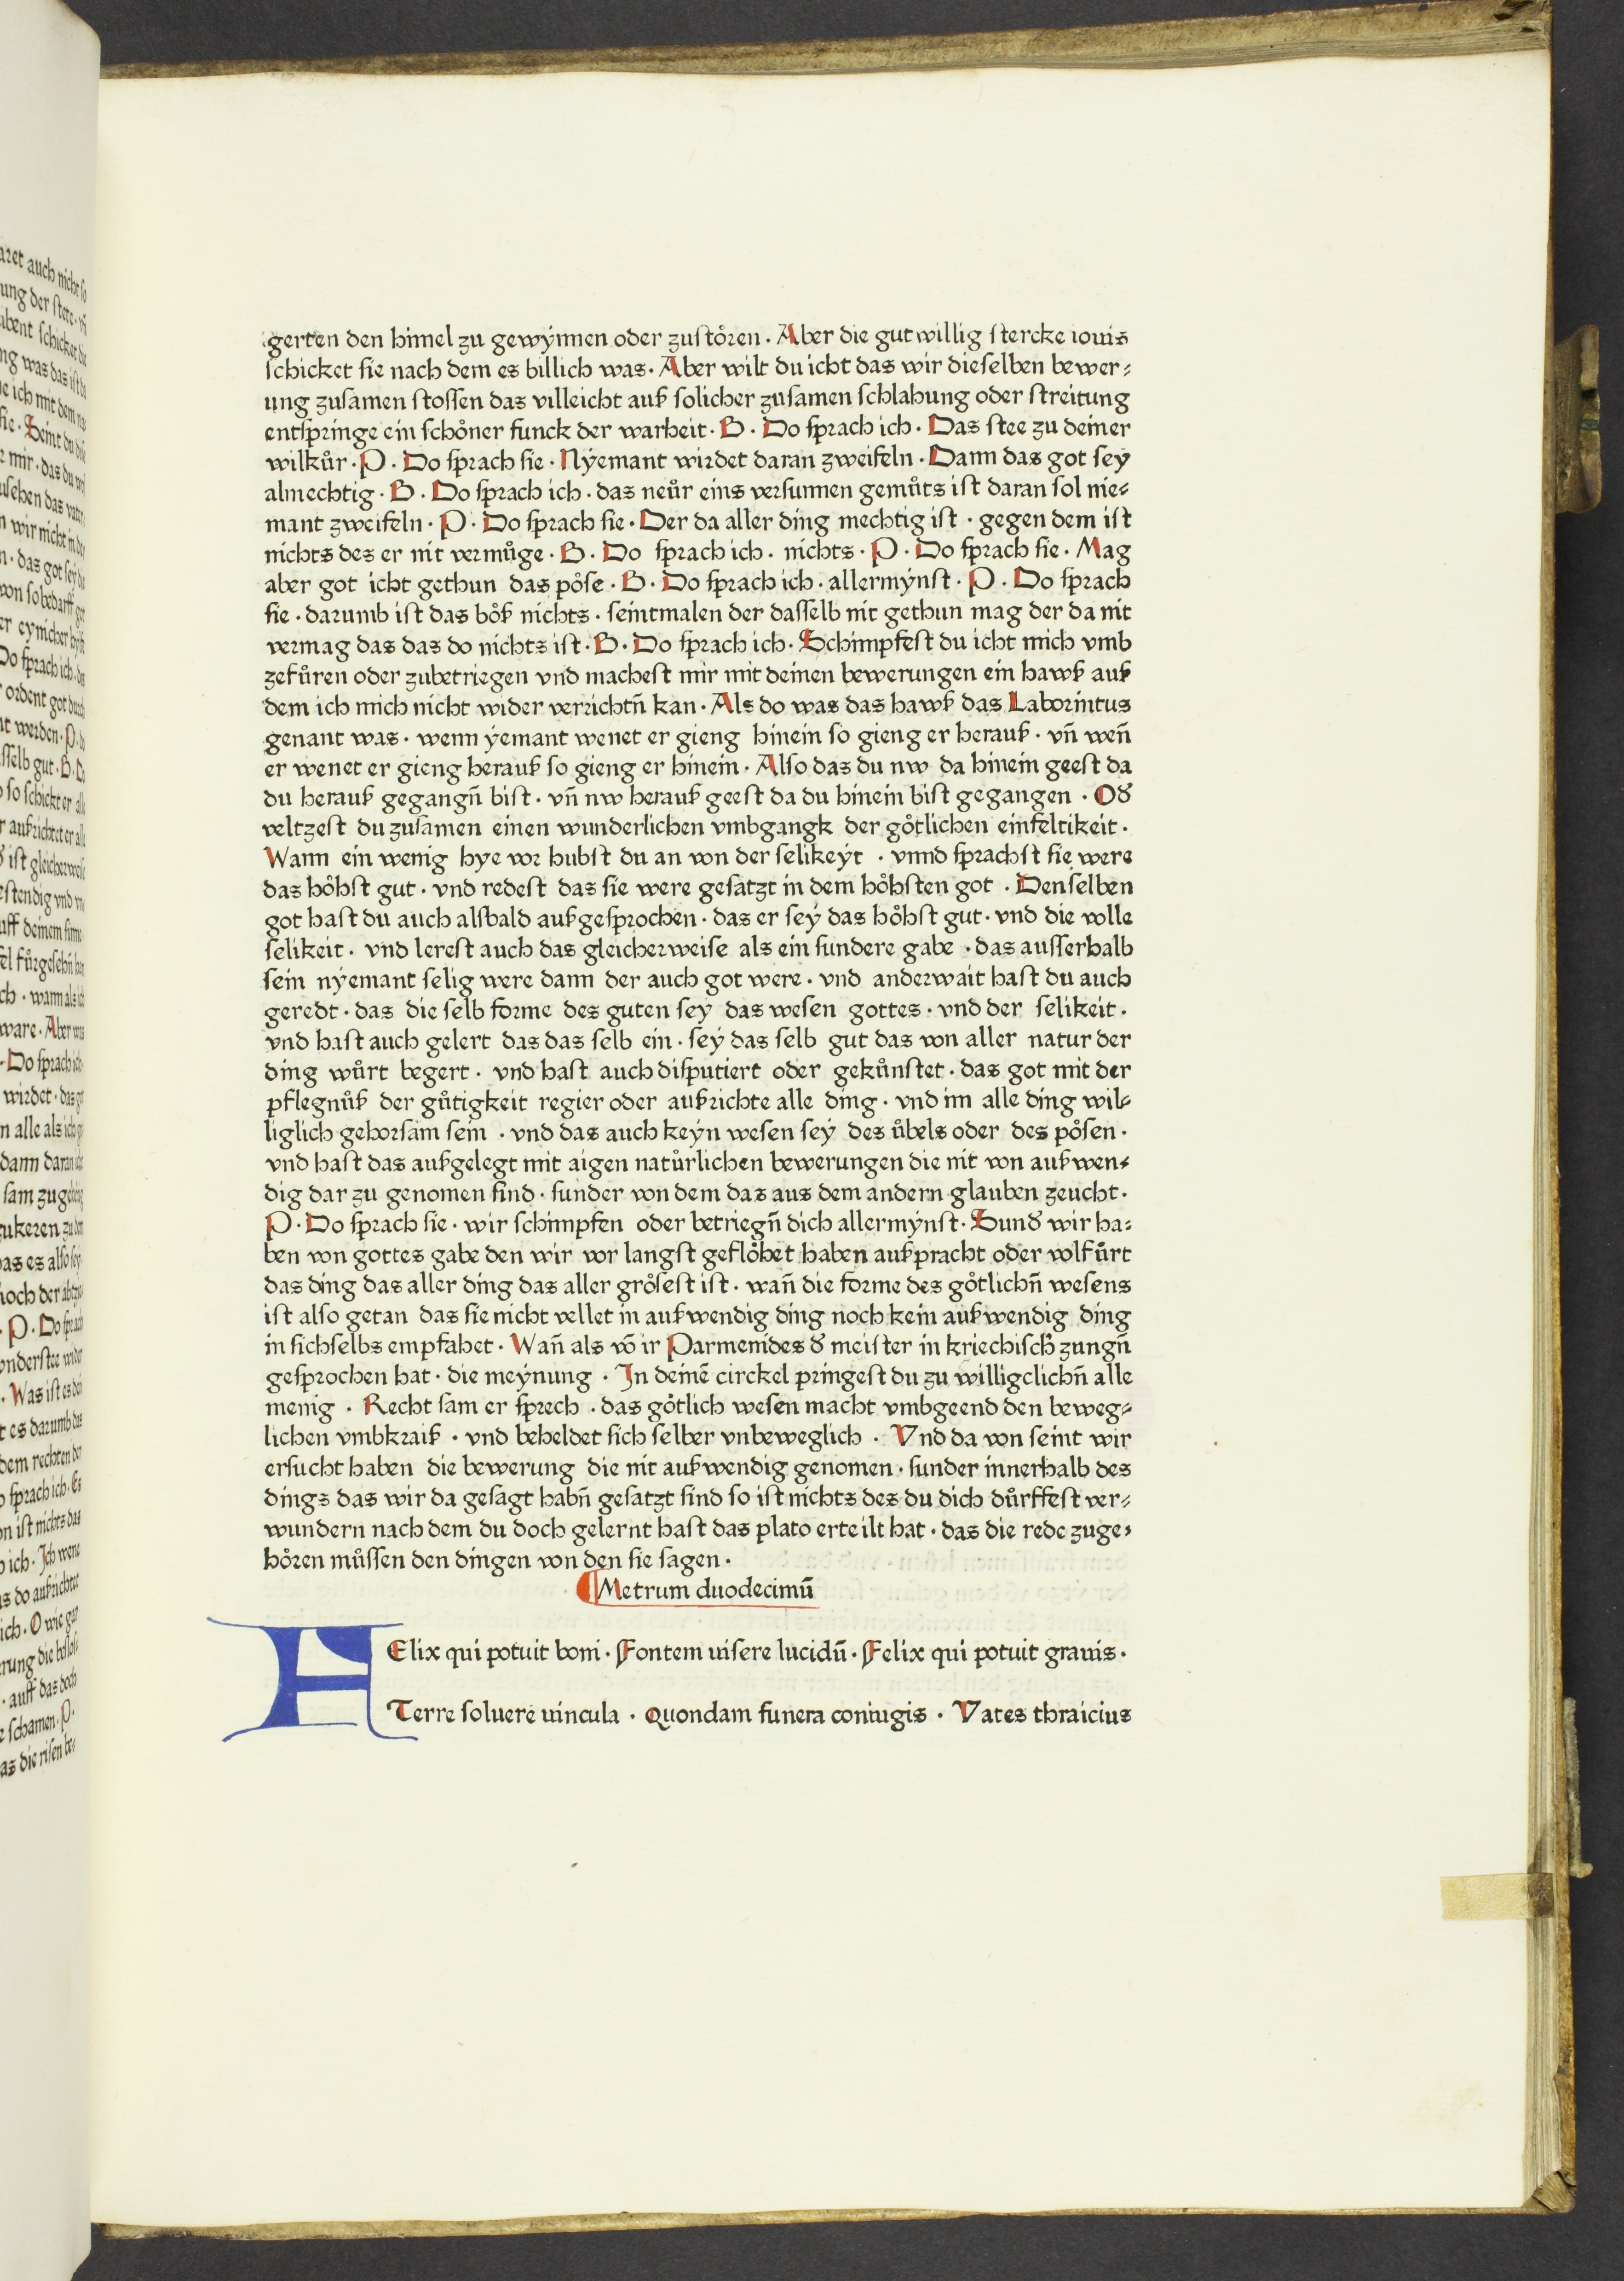 gerten den himel zu gewẏnnen oder zustoͤren · Aber die gut willig stercke iouis
schicket sie nach dem es billich was · Aber wilt du icht das wir dieselben bewer⸗
ung zusamen stossen das villeicht auß solicher zusamen schlahung oder streitung
entspringe ein schoͤner funck der warheit · B · Do sprach ich · Das stee zu deiner
wilkuͤr · P · Do sprach sie · Nẏemant wirdet daran zweifeln · Dann das got seẏ
almechtig · B · Do sprach ich · das neuͤr eins versunnen gemuͤts ist daran sol nie⸗
mant zweifeln · P · Do sprach sie · Der da aller ding mechtig ist · gegen dem ist
nichts des er nit vermuͤge · B · Do sprach ich · nichts · P · Do sprach sie · Mag
aber got icht gethun das poͤse · B · Do sprach ich · allermẏnst · P · Do sprach
sie · darumb ist das boͤß nichts · seintmalen der dasselb nit gethun mag der da nit
vermag das das do nichts ist · B · Do sprach ich · Schimpfest du icht mich vmb
zefuͤren oder zubetriegen vnd machest mir mit deinen bewerungen ein hawß auß
dem ich mich nicht wider verrichtn̄ kan · Als do was das hawß das Laborintus
genant was · wenn ẏemant wenet er gieng hinein so gieng er herauß · vn̄ wen̄
er wenet er gieng herauß so gieng er hinein · Also das du nw da hinein geest da
du herauß gegangn̄ bist · vn̄ nw herauß geest da du hinein bist gegangen · Od̕
veltzest du zusamen einen wunderlichen vmbgangk der goͤtlichen einfeltikeit ·
Wann ein wenig hye vor hubst du an von der selikeẏt · vnnd sprachst sie were
das hoͤhst gut · vnd redest das sie were gesatzt in dem hoͤhsten got · Denselben
got hast du auch alsbald außgesprochen · das er seẏ das hoͤhst gut · vnd die volle
selikeit · vnd lerest auch das gleicherweise als ein sundere gabe · das ausserhalb
sein nẏemant selig were dann der auch got were · vnd anderwait hast du auch
geredt · das die selb forme des guten seẏ das wesen gottes · vnd der selikeit ·
vnd hast auch gelert das das selb ein · seẏ das selb gut das von aller natur der
ding wuͤrt begert · vnd hast auch disputiert oder gekuͤnstet · das got mit der
pflegnuͤß der guͤtigkeit regier oder aufrichte alle ding · vnd im alle ding wil⸗
liglich gehorsam sein · vnd das auch keẏn wesen seẏ des uͤbels oder des poͤsen ·
vnd hast das außgelegt mit aigen natuͤrlichen bewerungen die nit von außwen⸗
dig dar zu genomen sind · sunder von dem das aus dem andern glauben zeucht ·
P · Do sprach sie · wir schimpfen oder betriegn̄ dich allermẏnst · Sund̕ wir ha⸗
ben von gottes gabe den wir vor langst gefloͤhet haben außpracht oder volfuͤrt
das ding das aller ding das aller groͤsest ist · wan̄ die forme des goͤtlichn̄ wesens
ist also getan das sie nicht vellet in außwendig ding noch kein außwendig ding
in sichselbs empfahet · Wan̄ als vō ir Parmenides d̕ meister in kriechisch̕ zungn̄
gesprochen hat · die meẏnung · In deinē circkel pringest du zu willigclichn̄ alle
menig · Recht sam er sprech · das goͤtlich wesen macht vmbgeend den beweg⸗
lichen vmbkraiß · vnd beheldet sich selber vnbeweglich · Vnd da von seint wir
ersucht haben die bewerung die nit außwendig genomen · sunder innerhalb des
dings das wir da gesagt habn̄ gesatzt sind so ist nichts des du dich duͤrffest ver⸗
wundern nach dem du doch gelernt hast das plato erteilt hat · das die rede zuge⸗
hoͤren muͤssen den dingen von den sie sagen ·
Metrum duodecimū
FElix qui potuit boni · Fontem uisere lucidū · Felix qui potuit grauis ·
Terre soluere uincula · Quondam funera coniugis · Vates thraicius